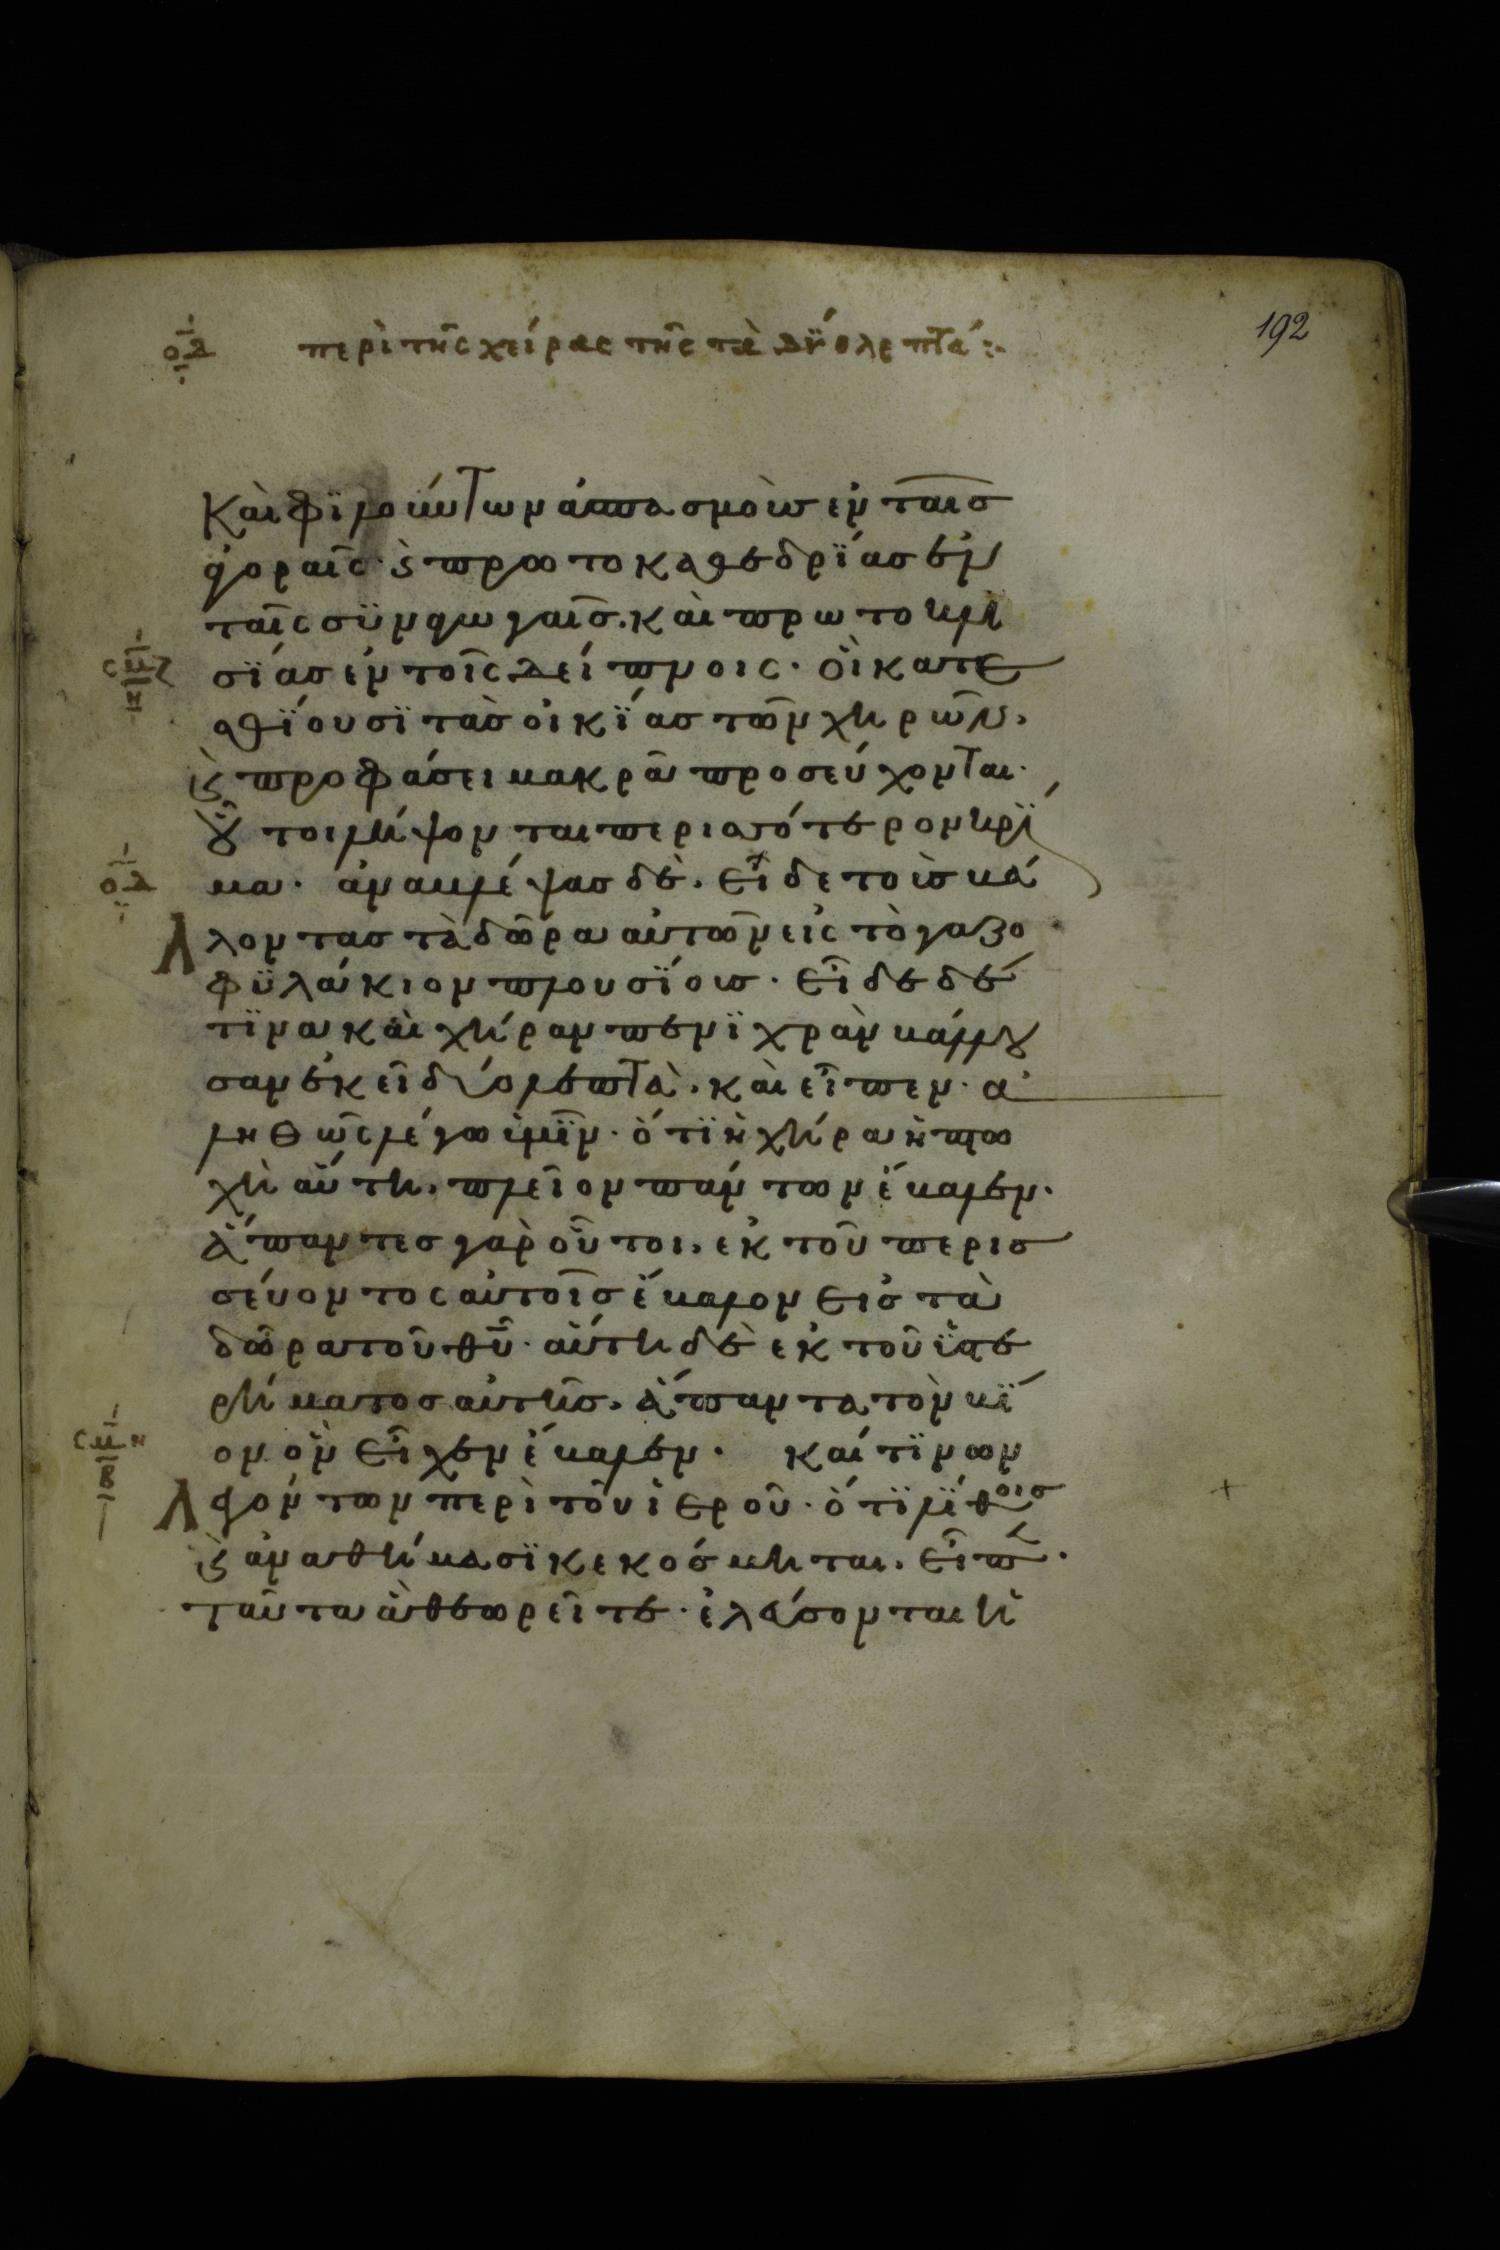 οδ περὶ τῆς χείρας τῆς τὰ δύο λεπτά :-
192
Καὶ φϊλούντων ἀσπασμοὺσ ἐν ταῖσ
ἀγοραῖς· ϗ πρωτοκαθεδρΐασ ἐν
ταῖς σϋναγωγαῖσ. καὶ πρωτοκλι
σΐασ ἐν τοῖς δείπνοις· οἳ κατε
σθΐουσϊ τὰσ οἰκΐασ τῶν χηρῶν.
ϗ προφάσει μακρᾶ προσεύχονται·
οὗτοι λήψονται περισσότερον κρΐ
μα· ἀναβλέψασ δὲ. εἶδε τοὺσ βά
λοντασ τὰ δῶρα αὐτῶν εἰς τὸ γαζο
φϋλάκιον πλουσΐουσ· εἶδε δέ
τϊνα καὶ χήραν πενϊχρὰν βάλλου
σαν ἐκεῖ δύο λεπτὰ. καὶ εἶπεν· ἀ
ληθῶς λέγω ὑμῖν· ὅτϊ ἡ χήρα ἡ πτω
χὴ αὕτη. πλεῖον πάντων ἔβαλεν·
ἅπαντεσ γὰρ οὗτοι. ἐκ τοῦ περισ
σεύοντος αὐτοῖσ ἔβαλον εἰσ τὰ
δῶρα τοῦ θῦ· αὕτη δὲ ἐκ τοῦ ὑστε
ρήματοσ αὐτῆσ. ἅπαντα τὸν βΐ
ον ὃν εἶχεν ἔβαλεν· καί τϊνων
λεγόντων περὶ τοῦ ἱεροῦ· ὅτϊ λΐθοισ
ϗ ἀναθήμασϊ κεκόσμηται. εἶπ·
ταῦτα ἃ θεωρεῖτε· ἐλεύσονται ἡ
οδ